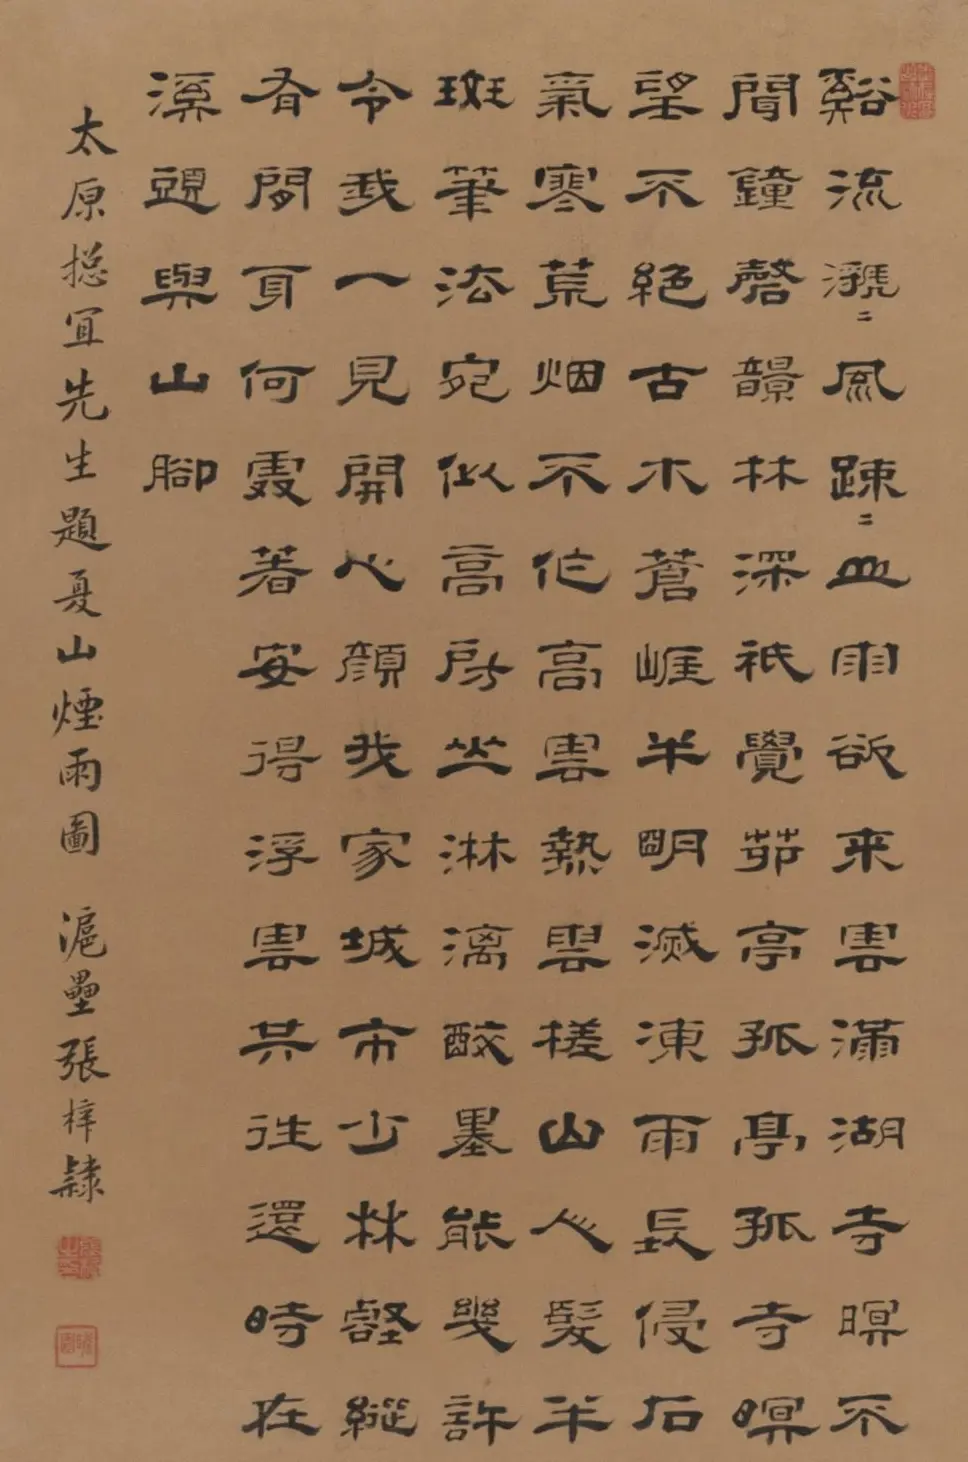 谿流㶁〻風疎〻山雨欲来雲滿湖寺暝不
聞鐘磬韻林深祇覺茆亭孤亭孤寺暝
望不絕古木蒼崕半明滅凍雨長侵石
氣寒荒烟不作高雲熱雲槎山人髮半
斑筆法宛似高房山淋漓醉墨能幾許
令我一見開心顏我家城市少林壑縱
有閒身何處著安得浮雲共往還時在
溪頭與山腳
太原摠宜先生題夏山煙雨圖 滬壘張梓隸